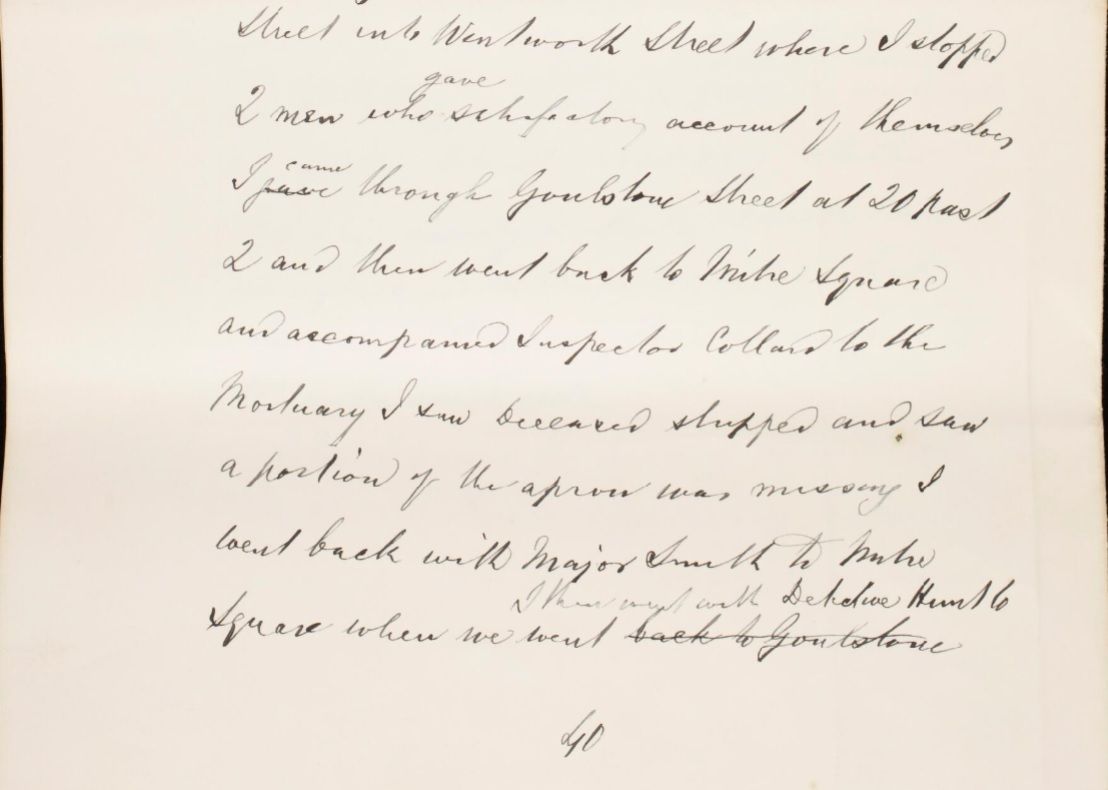 Street into Wentworth Street where I stopped
gave
2 men who satisfactory account of themselves
came
I gave through Goulstone Street at 20 past
2 and then went back to Mitre Square
and accompanied Inspector Collard to the
Mortuary I saw Deceased stripped and saw
a portion of the apron was missing I
went back with Major Smith to Mitre
I then went with Detective Hunt to
Square when we went back to Goulstone
40